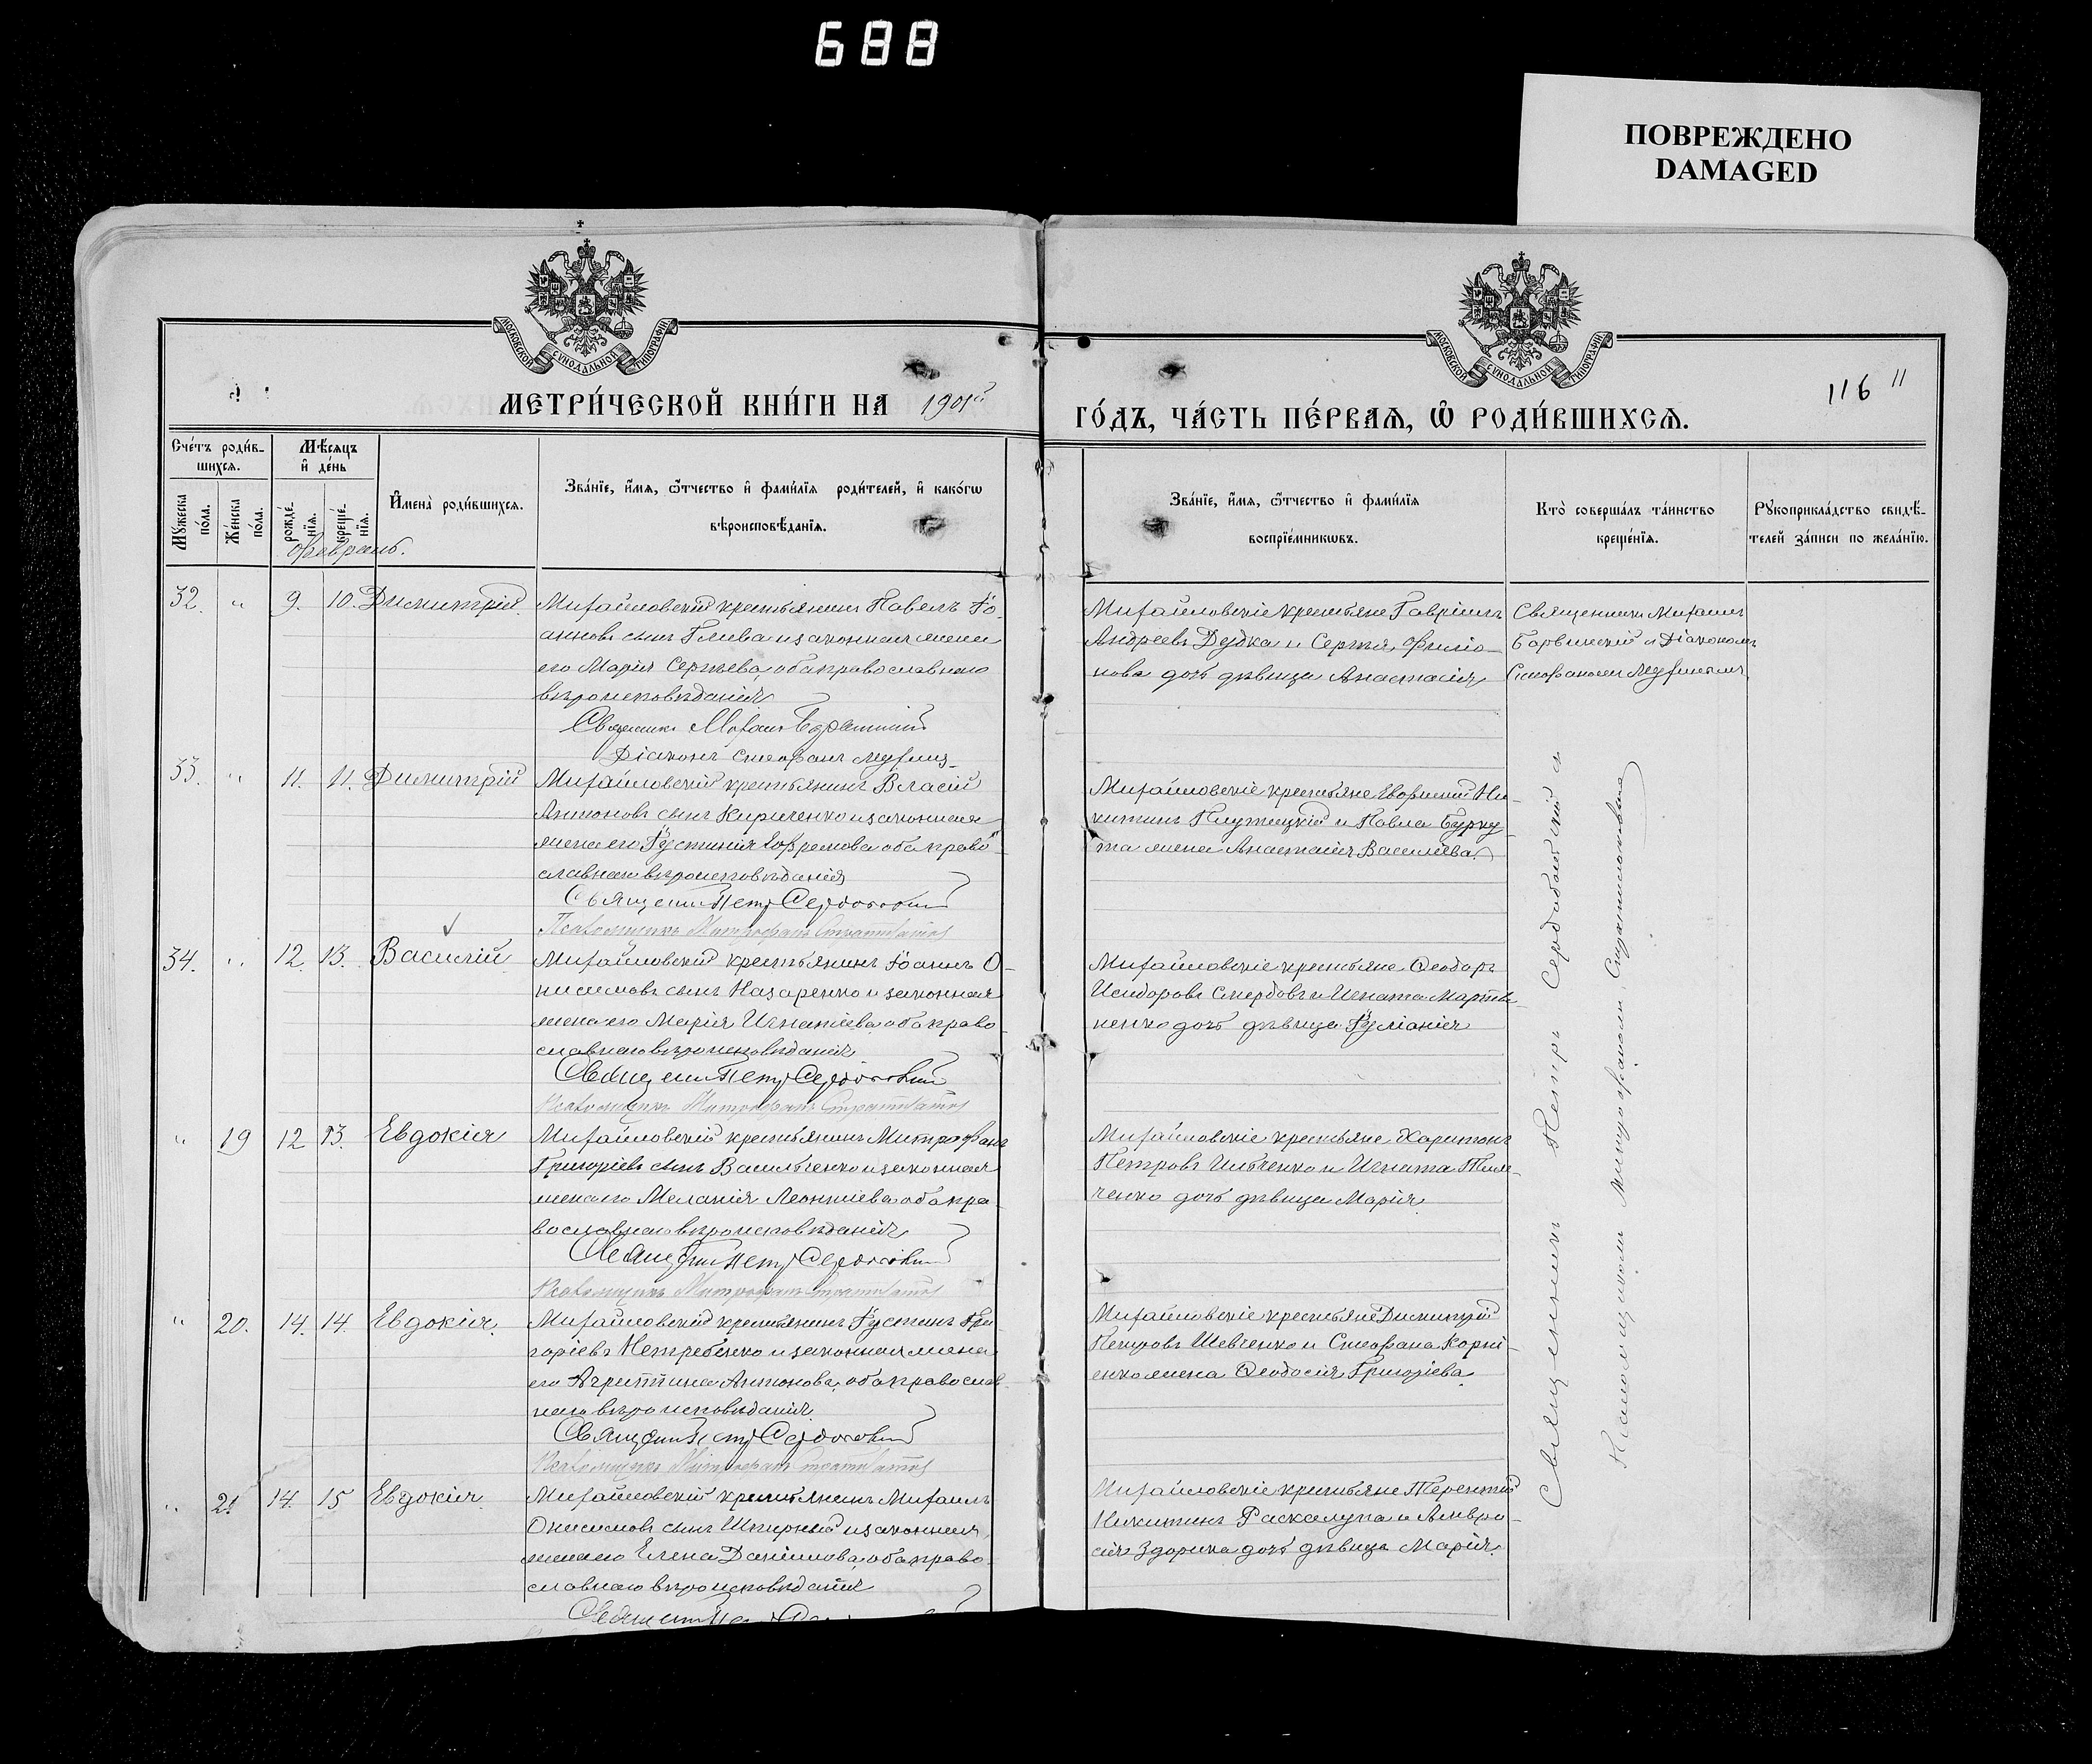 688
ПОВРЕЖДЕНО
DAMAGED
МОСКОВСКОЙ СѴНОДАЛЬНОЙ ТИПОГРАФІИ
МОСКОВСКОЙ СѴНОДАЛЬНОЙ ТИПОГРАФІИ
116
МЕТРИ́ЧЕСКОЙ КНИ́ГИ НА 1901й
ГО́ДЪ, ЧА́СТЬ ПЕ́РВАѦ, Ѽ РОДИ́ВШИХСѦ.
Сче́тъ роди́в-
шихсѧ.
Мꙋ́жеска по́ла.
Же́нска по́ла.
Мѣ́сѧцъ и҆ де́нь
рожде́нїѧ.
креще́нїѧ.
И҆мена̀ роди́вшихсѧ.
Зва́нїе, и҆́мѧ, ѻ҆́тчество и҆ фами́лїѧ роди́телей, и҆ како́гѡ
вѣроисповѣ́данїѧ.
Зва́нїе, и҆́мѧ, ѻ҆́тчество и҆ фами́лїѧ
воспрїе́мникѡвъ.
Кто̀ соверша́лъ та́инство
креще́нїѧ.
Рꙋкоприкла́дство свидѣ́-
телей за́писи по жела́нїю.
Февраль.
32. " 9. 10. Димитрій
Михайловскій крестьянинъ Павелъ Іо-
анновъ сынъ Глива и законная жена
его Марія Сергѣева, оба православнаго
вѣроисповѣданія
Священникъ Михаилъ
Діаконъ Стефанъ
Михайловскіе крестьяне Гавріилъ
Андреевъ Дудка и Сергѣя Филio-
нова дочь дѣвица Анастасія
Священникъ Михаилъ
и Діакономъ
Стефаномъ
33. " 11. 11. Димитрій
Михайловскій крестьянинъ Власій
Антоновъ сынъ Кириченко и законная
жена его Іустинія Ефремова оба право-
славнаго вѣроисповѣданія
Священ Петръ
Псаломщикъ Митрофанъ
Михайловскіе крестьяне Евфимій Ни-
китинъ Плужецкій и Павла Бурку-
та жена Анастасія Василіева.
34. " 12. 13. Василій
Михайловскій крестьянинъ Іоаннъ О-
нисимовъ сынъ Назаренко и законная
жена его Марія Игнатіева, оба право-
славнаго вѣроисповѣданія
Священ Петръ
Псаломщикъ Митрофанъ
Михайловскіе крестьяне Ѳеодоръ
Исидоровъ Смердовъ и Игната Марти-
ненко дочь дѣвица Іуліанія
" 19 12 13. Евдокія
Михайловскій крестьянинъ Митрофанъ
Григоріевъ сынъ Васильченко и законная
жена его Меланія Леонтіева оба пра-
вославнаго вѣроисповѣданія
Священ Петръ
Псаломщикъ Митрофанъ
Михайловскіе крестьяне Харитонъ
Петровъ Ильченко и Игната
ченко дочь дѣвица Марія.
" 20. 14. 14. Евдокія.
Михайловскій крестьянинъ Іустинъ Гри-
горіевъ Нетребенко и законная жена
его Агриппина Антонова, оба православ-
наго вѣроисповѣданія.
Священ Петръ
Псаломщикъ Митрофанъ
Михайловскіе крестьяне Димитрій
Петровъ Шевченко и Стефана Корні-
енко жена Ѳеодосія Григоріева.
" 21 14. 15 Евдокія.
Михайловскій крестьянинъ Михаилъ
Онисимовъ сынъ Шпирный и законная
жена его Елена Даніилова, оба право-
славнаго вѣроисповѣданія
Михайловскіе крестьяне Терентій
Никитинъ Раскалупа и Амвро-
сія Здорика дочь дѣвица Марія.
Священникъ Петръ
Псаломщикомъ Митрофаномъ